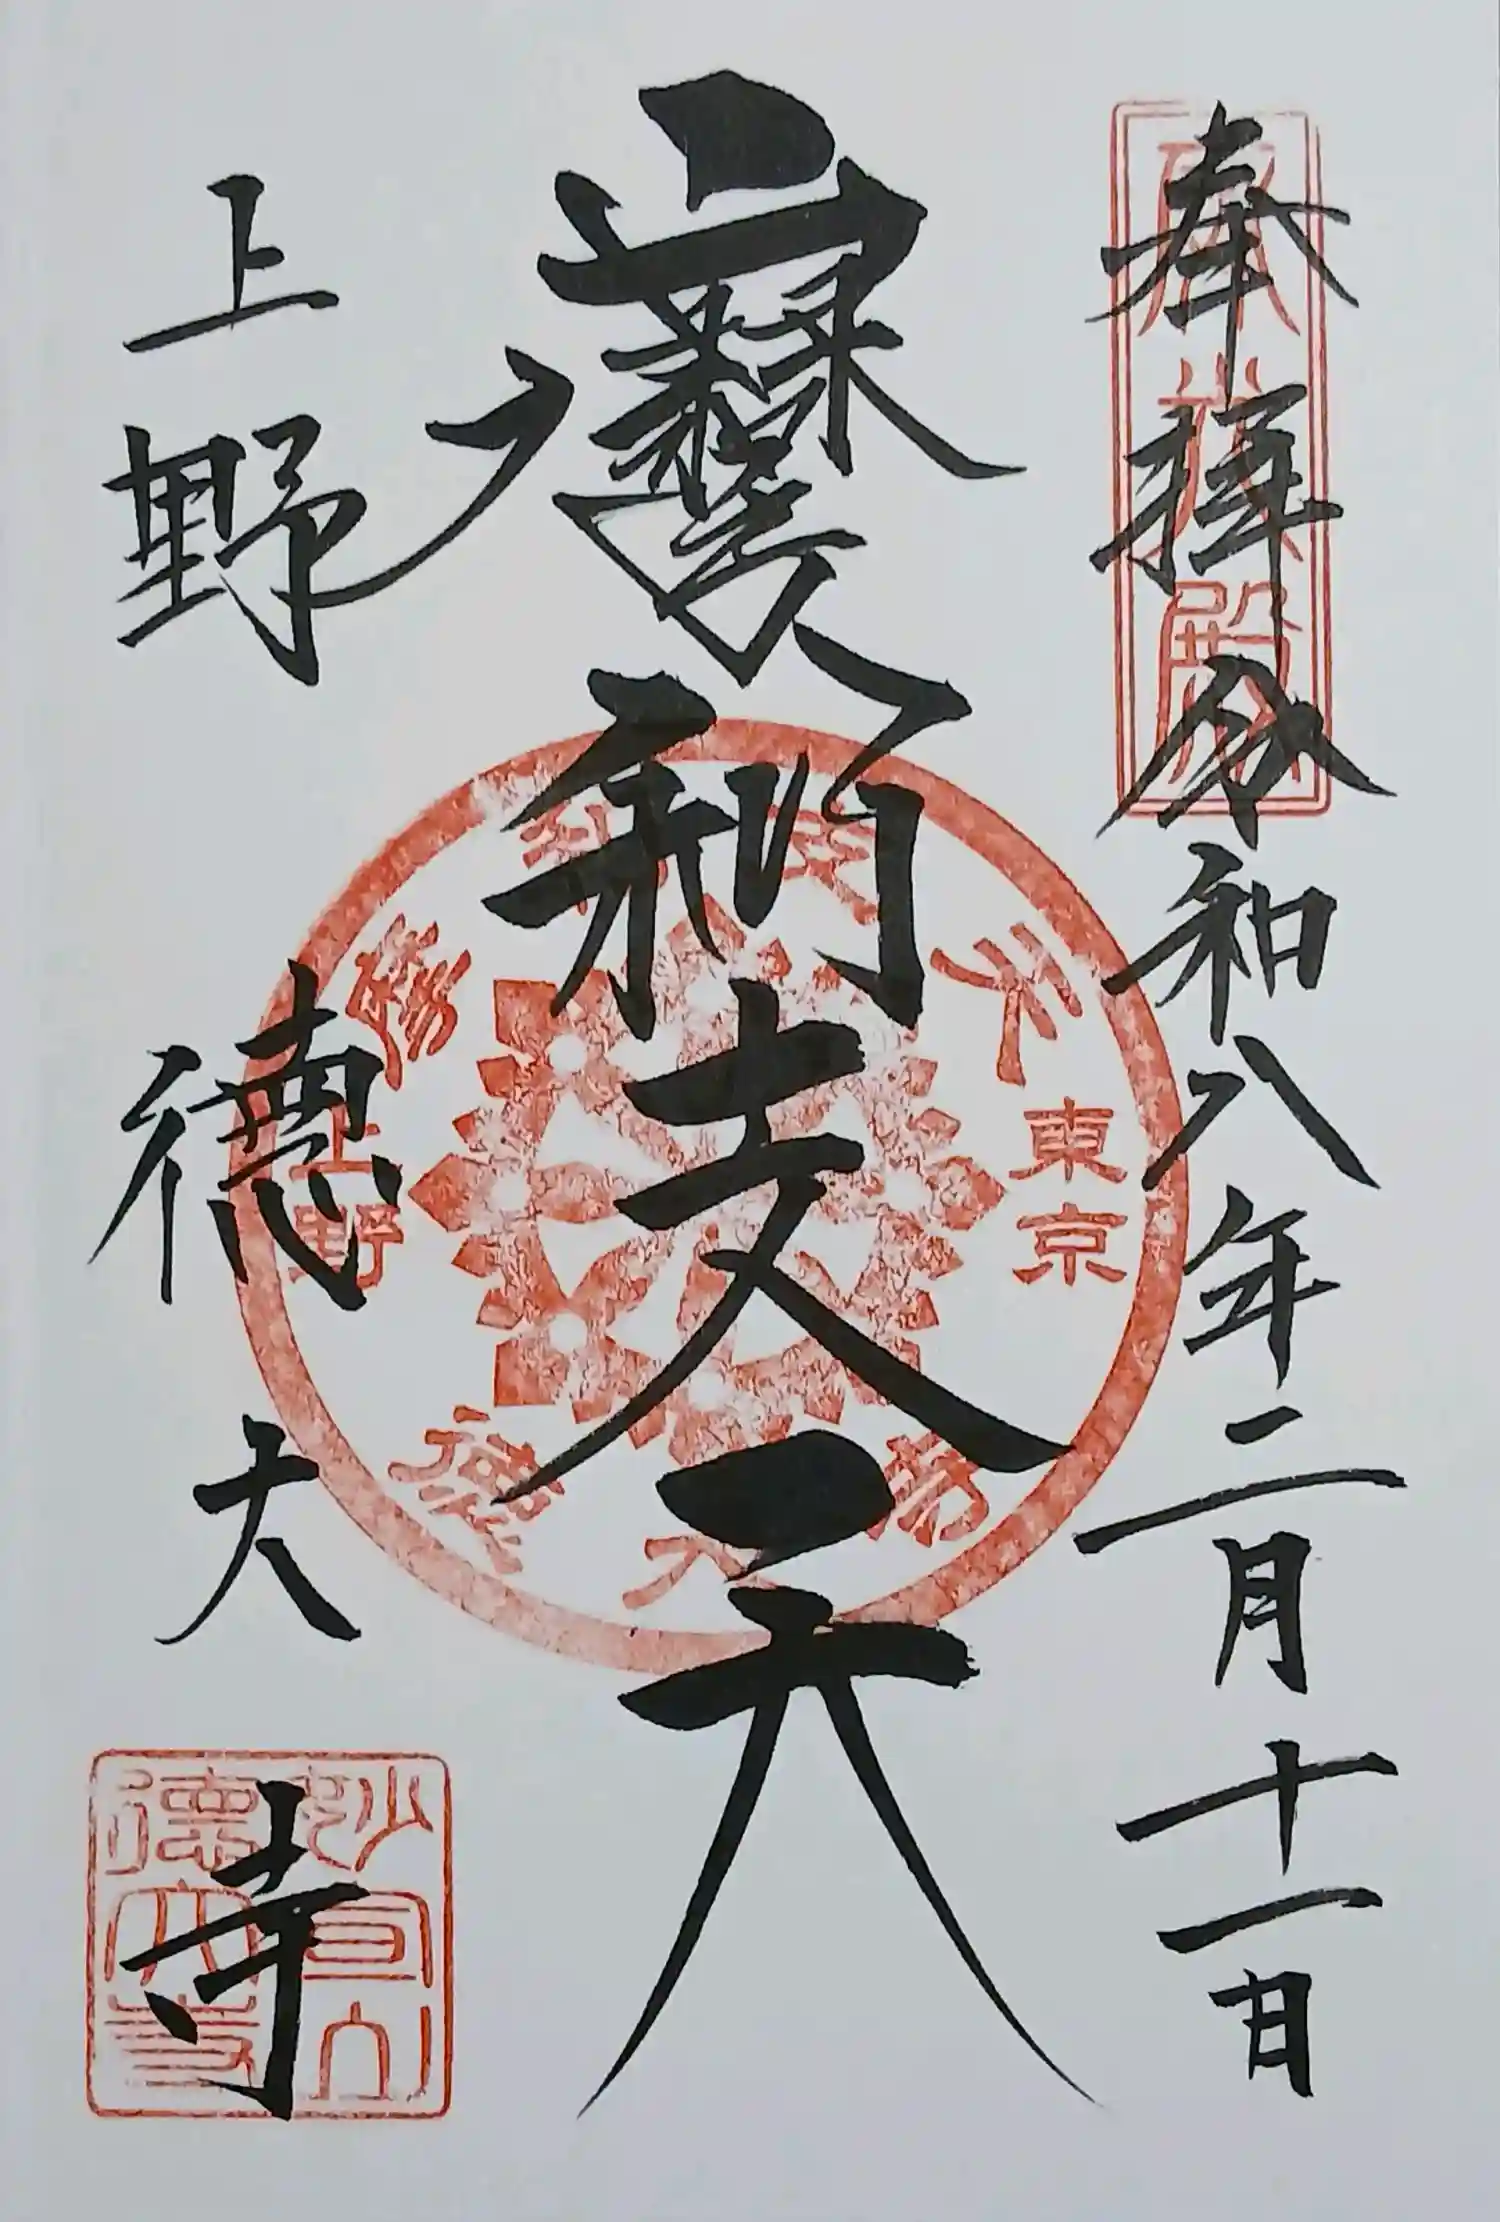 奉拝 令和八年二月十一日
摩利支天
上野 徳大寺
東京
上野
摩利支天
徳大寺
妙宣山
徳大寺